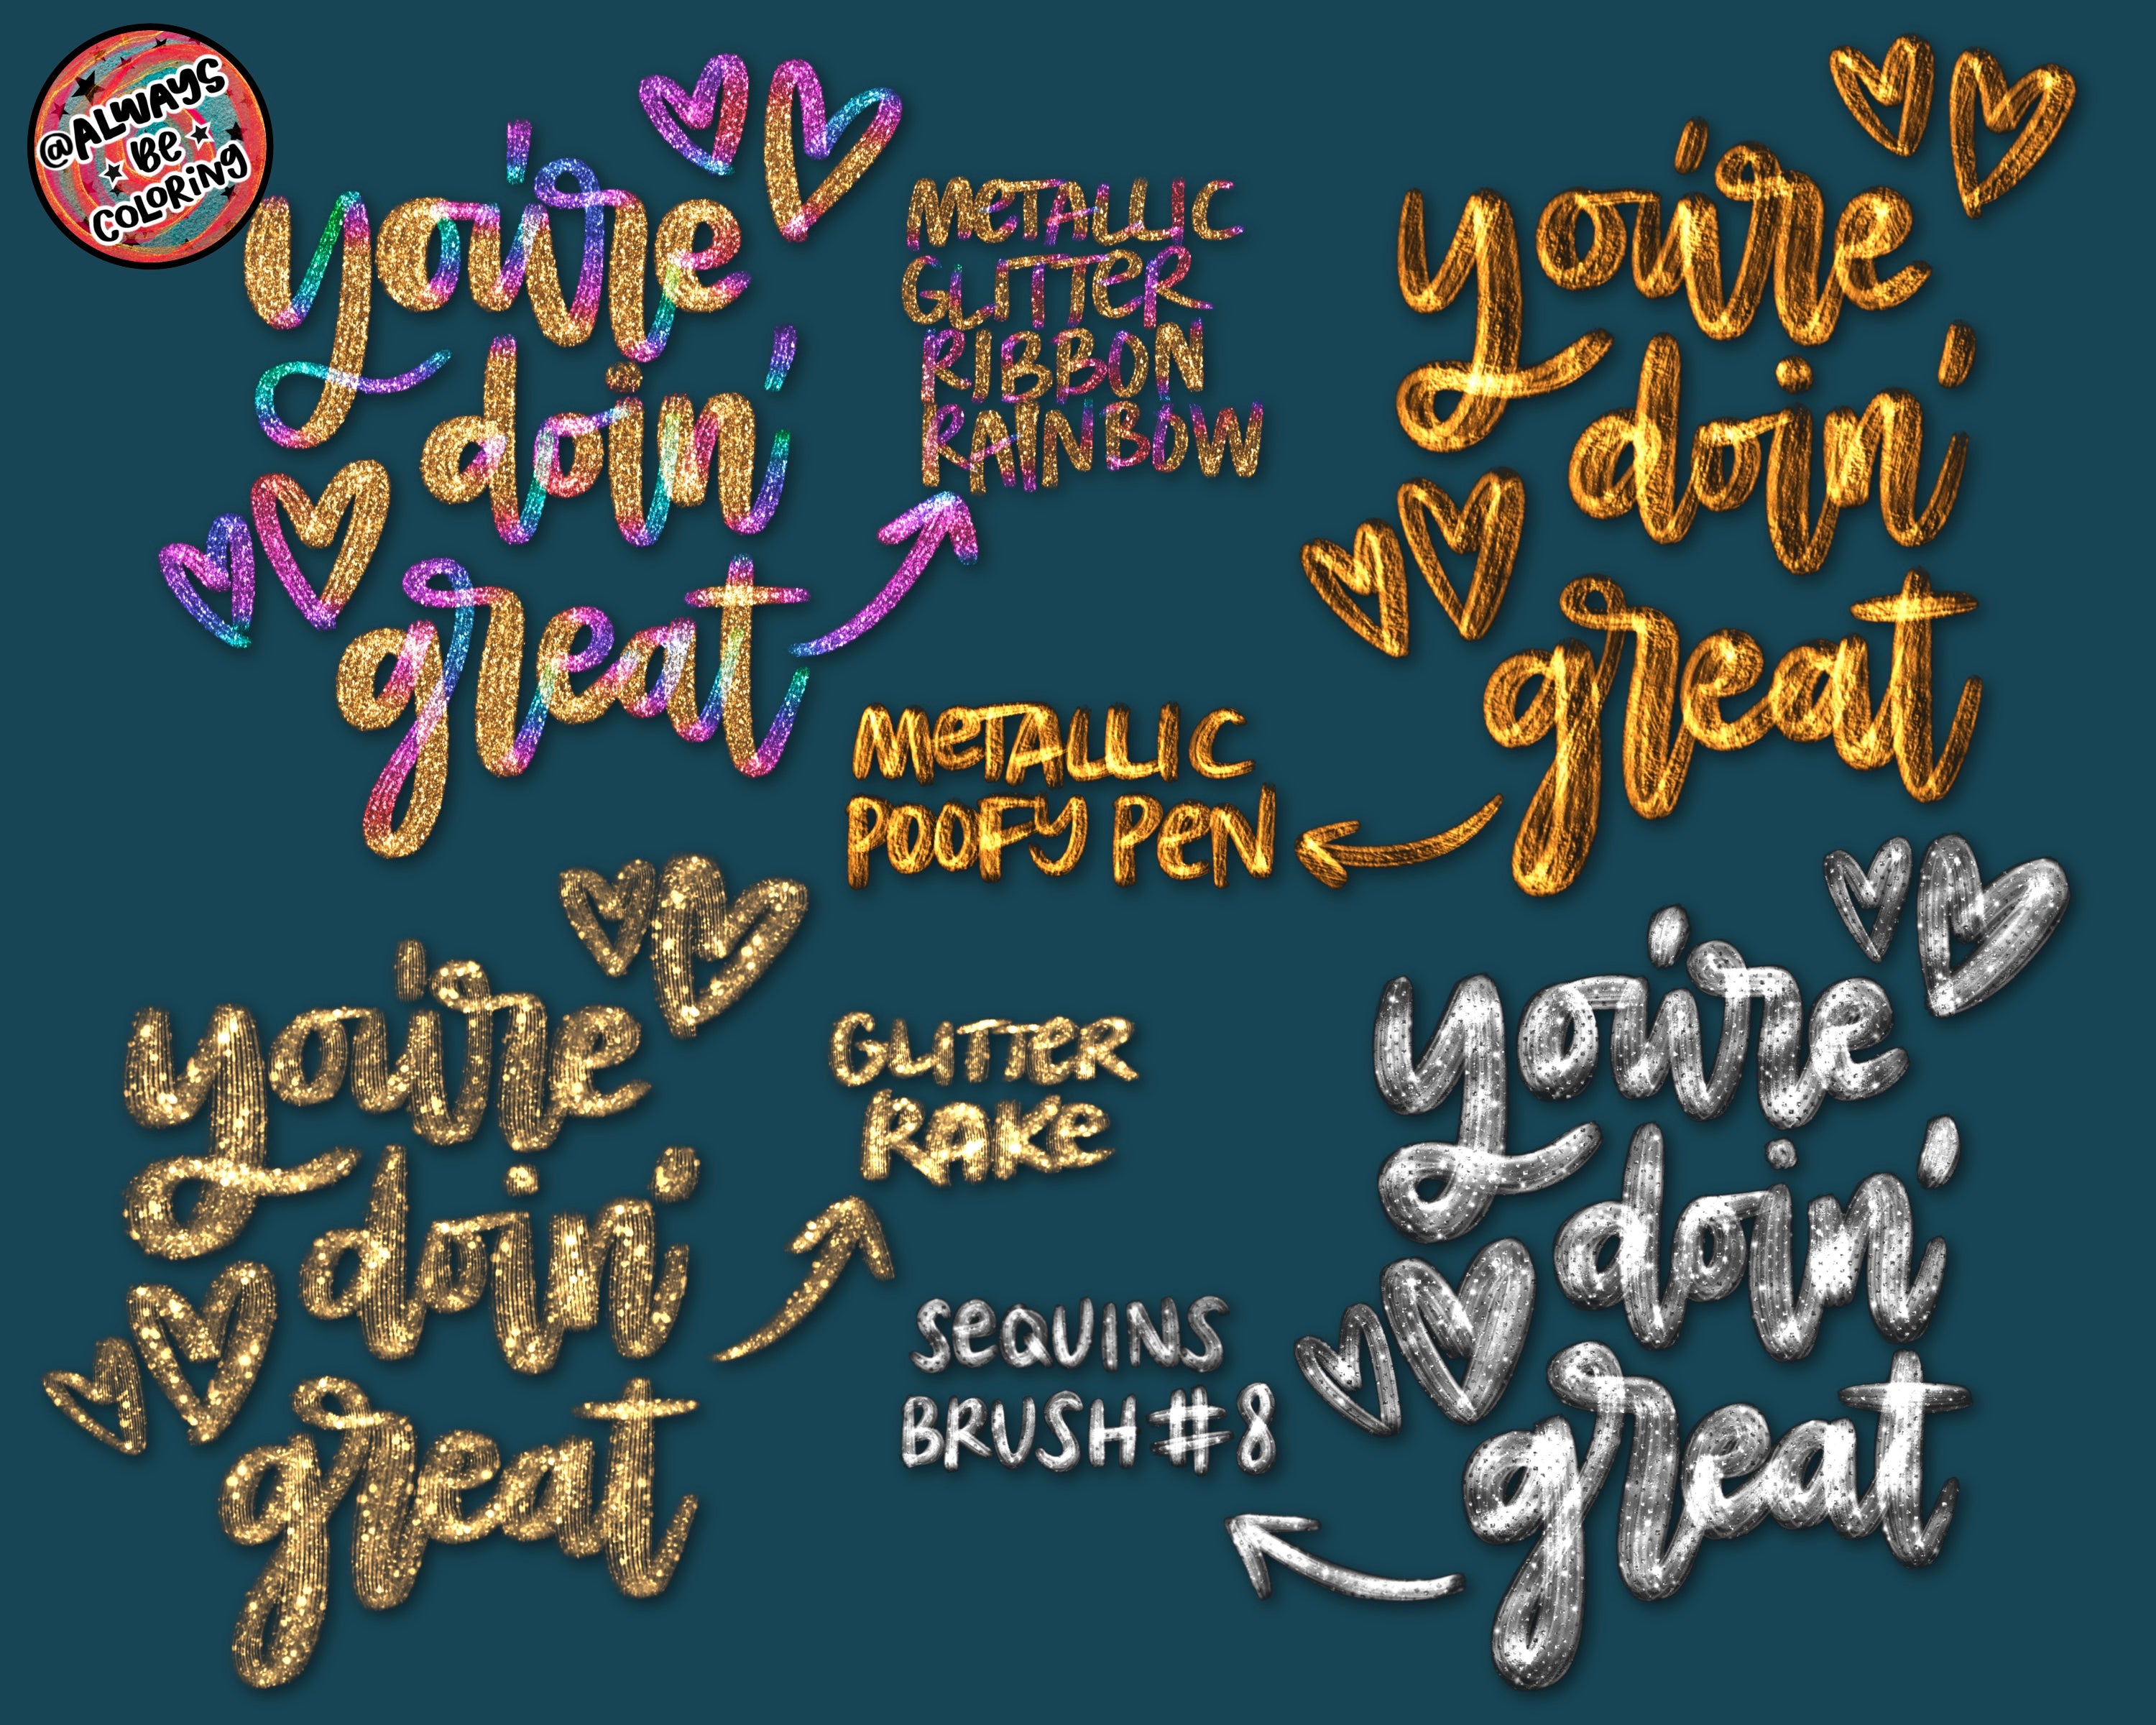 @ALWAYS
BE
COLORING
you're
doin'
great
METALLIC
GLITTER
RIBBON
RAINBOW
you're
doin'
great
METALLIC
POOFY PEN
you're
doin'
great
GLITTER
RAKE
you're
doin'
great
SEQUINS
BRUSH #8